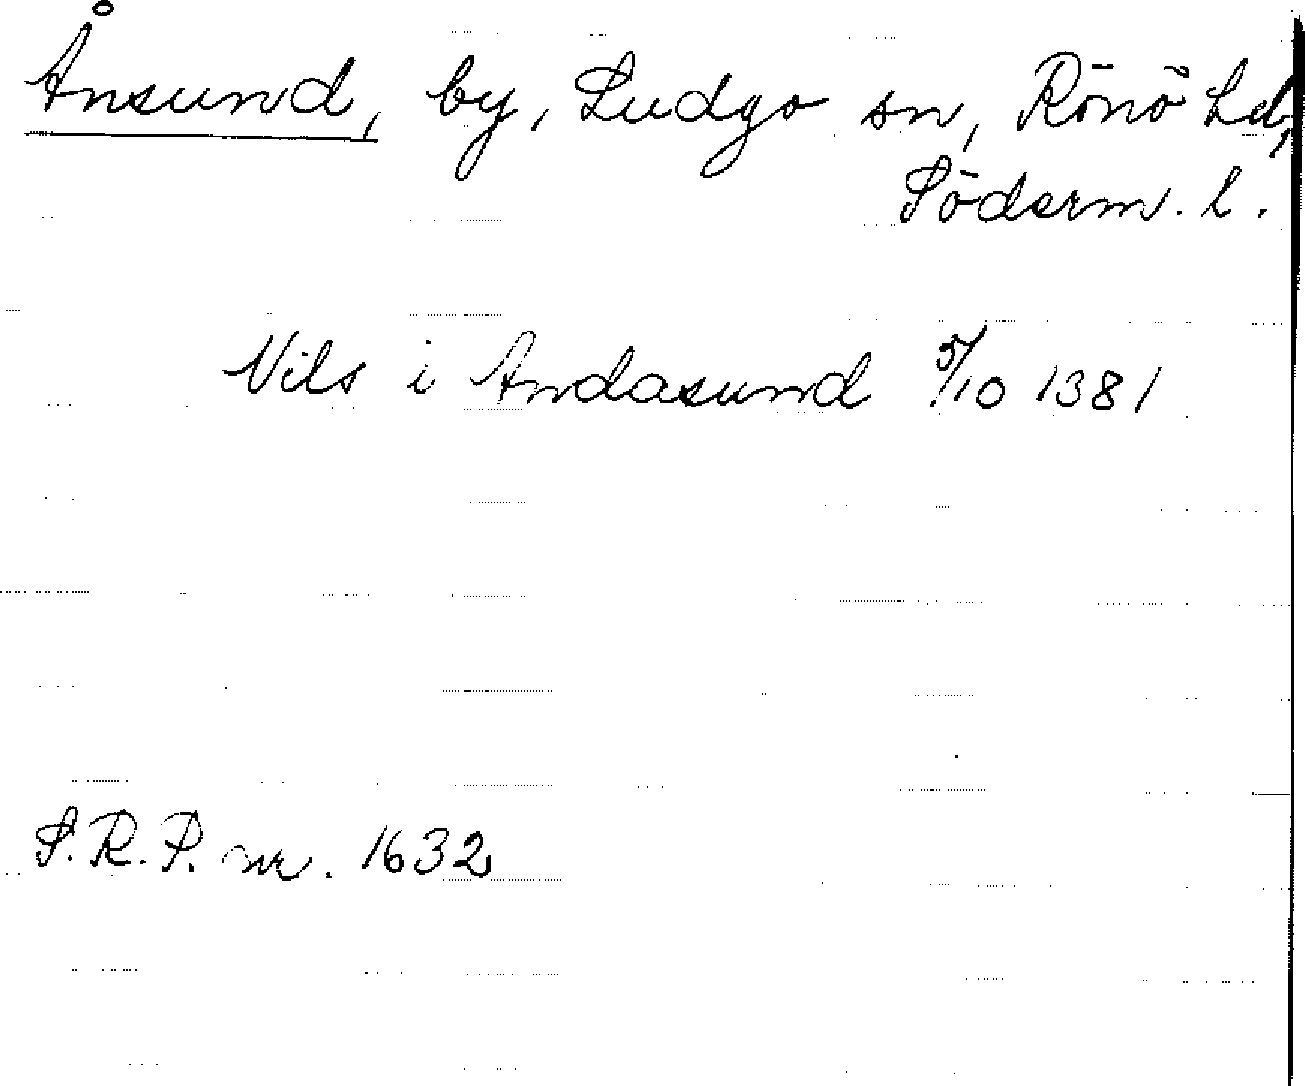 Ånsund, by, Ludgo sn, Rönö hd,
Söderm. l.
Nils i Andasund 5/10 1381
S.R.P. nr. 1632